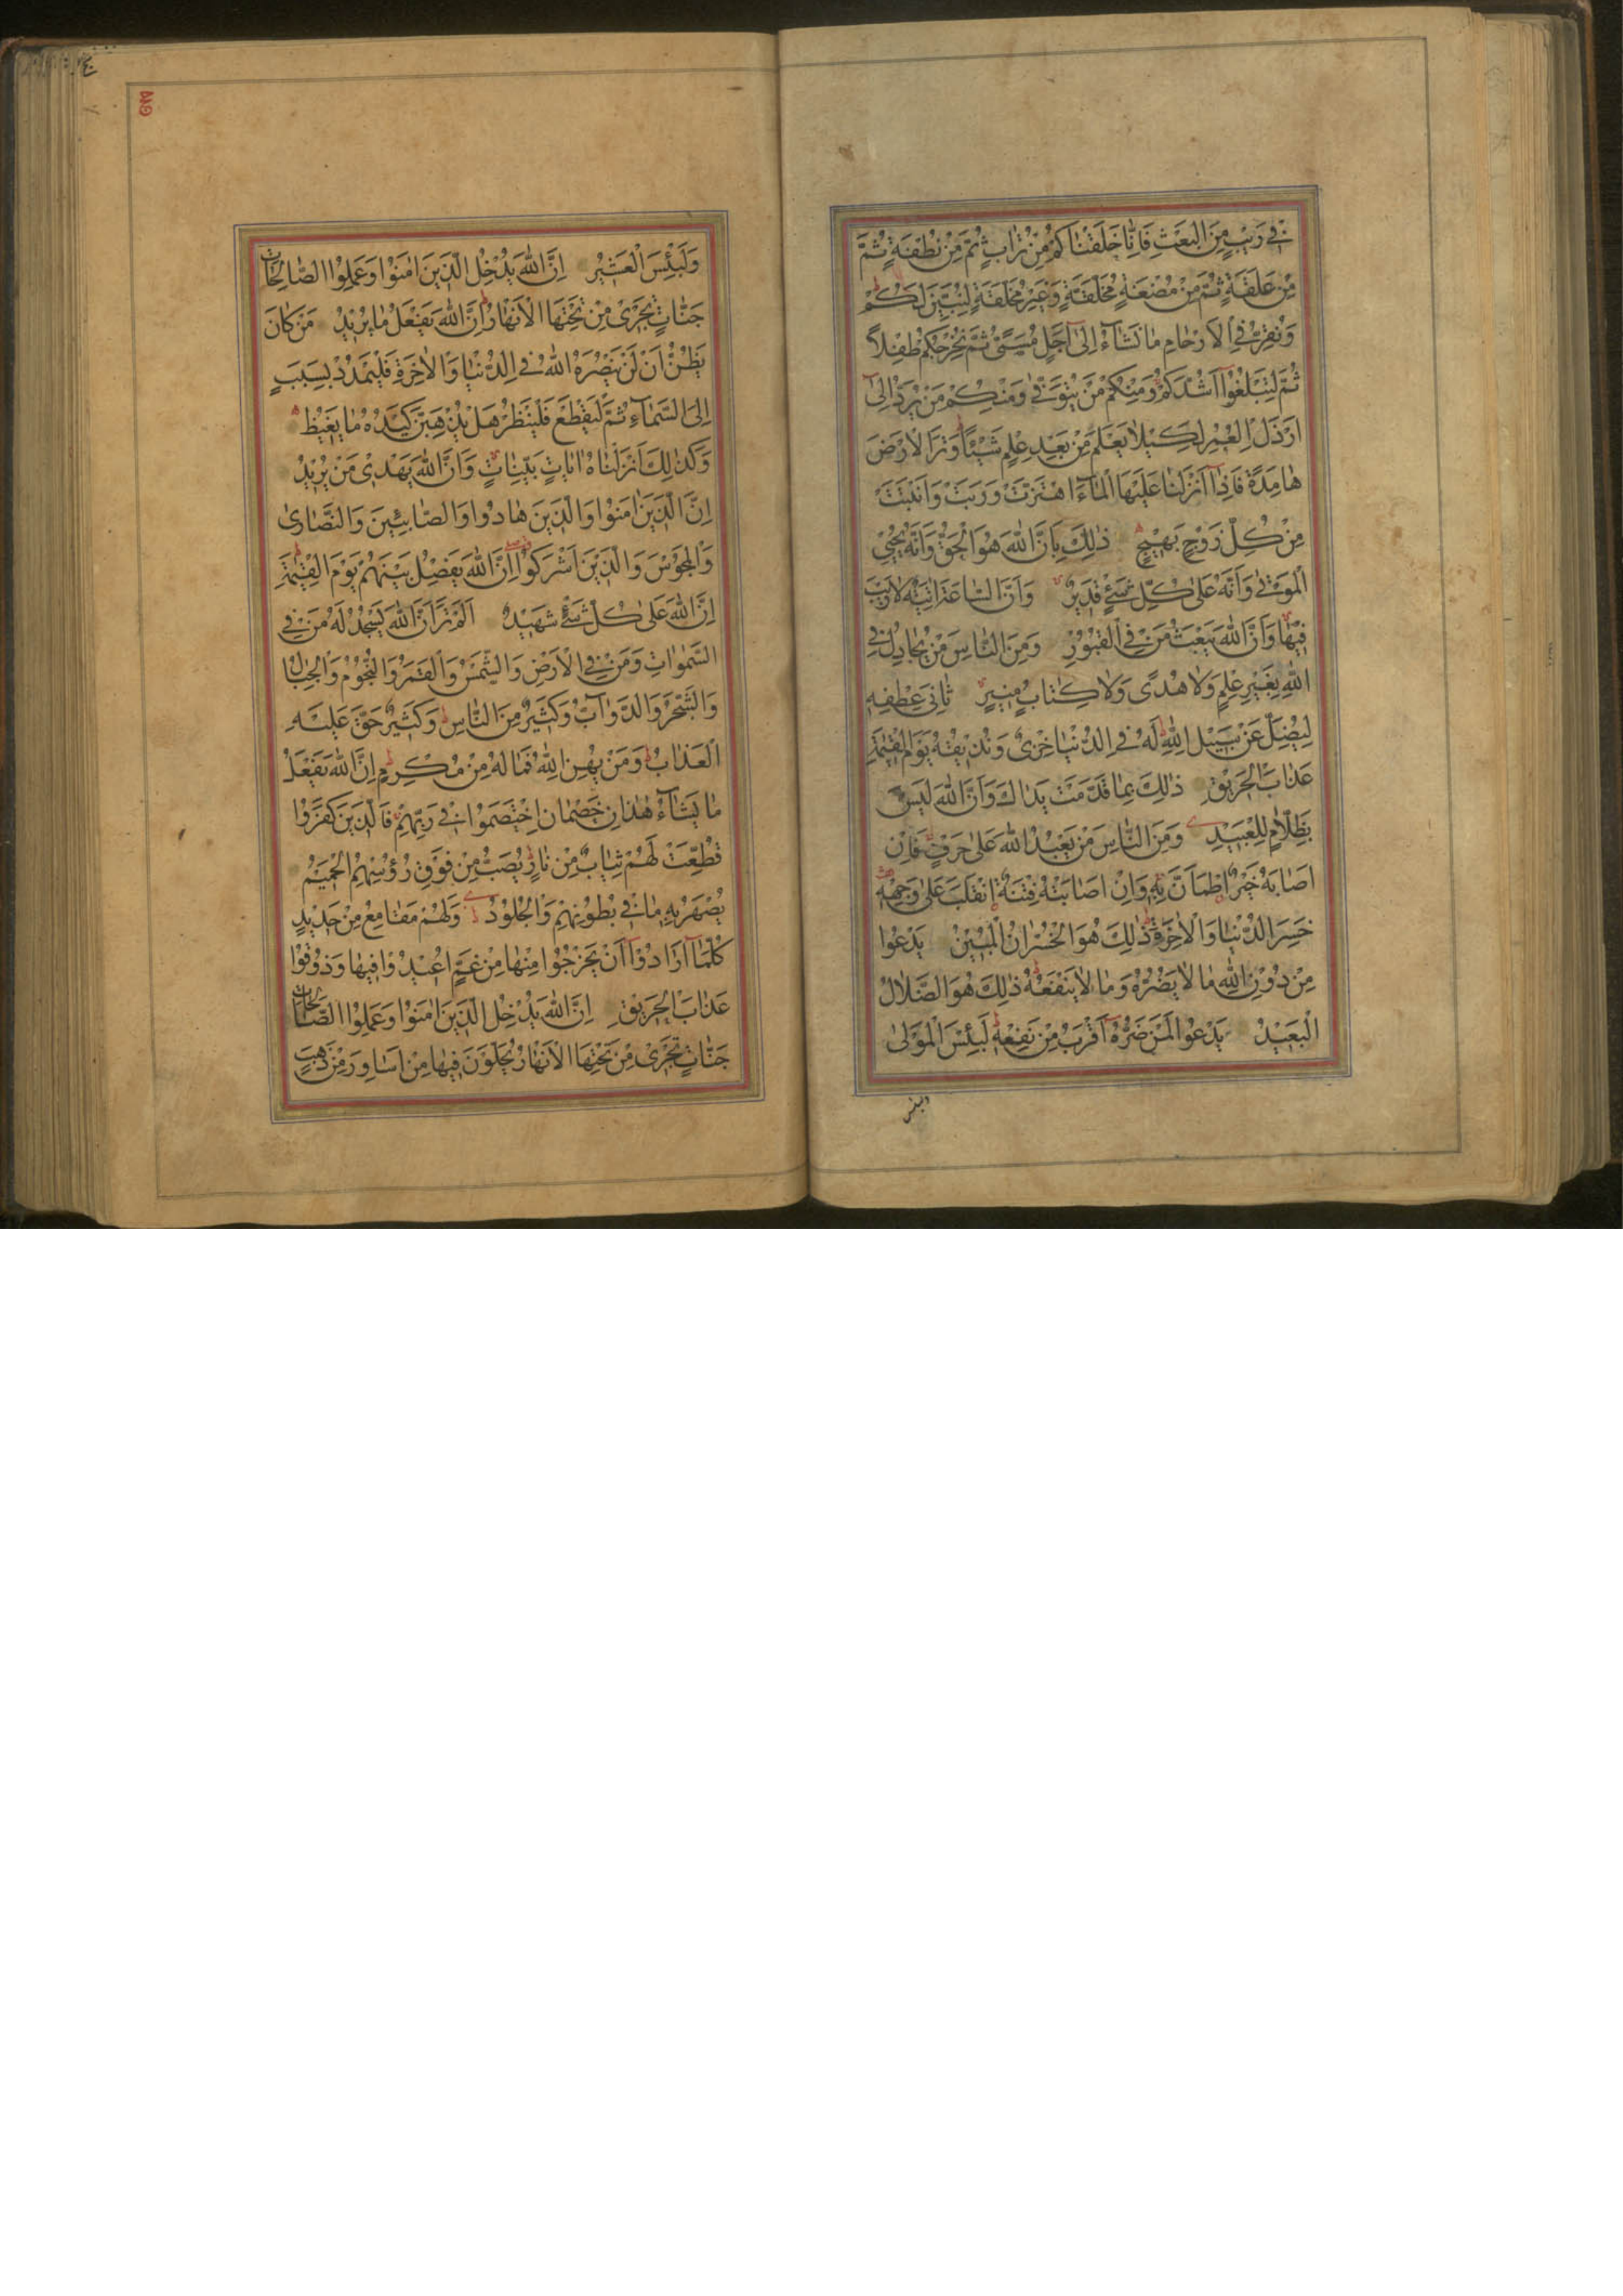 فِي رَيْبٍ مِنَ الْبَعْثِ فَاِنَّا خَلَقْنَاكُمْ مِنْ تُرَابٍ ثُمَّ مِنْ نُطْفَةٍ ثُمَّ
مِنْ عَلَقَةٍ ثُمَّ مِنْ مُضْغَةٍ مُخَلَّقَةٍ وَغَيْرِ مُخَلَّقَةٍ لِنُبَيِّنَ لَكُمْ
وَنُقِرُّ فِي الْاَرْحَامِ مَا نَشَآءُ اِلٰى اَجَلٍ مُسَمًّى ثُمَّ نُخْرِجُكُمْ طِفْلًا
ثُمَّ لِتَبْلُغُوْا اَشُدَّكُمْ وَمِنْكُمْ مَنْ يُتَوَفّٰى وَمِنْكُمْ مَنْ يُرَدُّ اِلٰى
اَرْذَلِ الْعُمُرِ لِكَيْلَا يَعْلَمَ مِنْ بَعْدِ عِلْمٍ شَيْئًا وَتَرَى الْاَرْضَ
هَامِدَةً فَاِذَا اَنْزَلْنَا عَلَيْهَا الْمَآءَ اهْتَزَّتْ وَرَبَتْ وَاَنْبَتَتْ
مِنْ كُلِّ زَوْجٍ بَهِيْجٍ ذٰلِكَ بِاَنَّ اللّٰهَ هُوَ الْحَقُّ وَاَنَّهُ يُحْيِي
الْمَوْتٰى وَاَنَّهُ عَلٰى كُلِّ شَيْءٍ قَدِيْرٌ وَاَنَّ السَّاعَةَ اٰتِيَةٌ لَا رَيْبَ
فِيْهَا وَاَنَّ اللّٰهَ يَبْعَثُ مَنْ فِي الْقُبُوْرِ وَمِنَ النَّاسِ مَنْ يُجَادِلُ فِي
اللّٰهِ بِغَيْرِ عِلْمٍ وَلَا هُدًى وَلَا كِتَابٍ مُنِيْرٍ ثَانِيَ عِطْفِهِ
لِيُضِلَّ عَنْ سَبِيْلِ اللّٰهِ لَهُ فِي الدُّنْيَا خِزْيٌ وَنُذِيْقُهُ يَوْمَ الْقِيٰمَةِ
عَذَابَ الْحَرِيْقِ ذٰلِكَ بِمَا قَدَّمَتْ يَدَاكَ وَاَنَّ اللّٰهَ لَيْسَ
بِظَلَّامٍ لِلْعَبِيْدِ وَمِنَ النَّاسِ مَنْ يَعْبُدُ اللّٰهَ عَلٰى حَرْفٍ فَاِنْ
اَصَابَهُ خَيْرٌ اِطْمَاَنَّ بِهِ وَاِنْ اَصَابَتْهُ فِتْنَةٌ اِنْقَلَبَ عَلٰى وَجْهِهِ
خَسِرَ الدُّنْيَا وَالْاٰخِرَةَ ذٰلِكَ هُوَ الْخُسْرَانُ الْمُبِيْنُ يَدْعُوْا
مِنْ دُوْنِ اللّٰهِ مَا لَا يَضُرُّهُ وَمَا لَا يَنْفَعُهُ ذٰلِكَ هُوَ الضَّلَالُ
الْبَعِيْدُ يَدْعُوا لَمَنْ ضَرُّهُ اَقْرَبُ مِنْ نَفْعِهِ لَبِئْسَ الْمَوْلٰى
ولبئس
وَلَبِئْسَ الْعَشِيْرُ اِنَّ اللّٰهَ يُدْخِلُ الَّذِيْنَ اٰمَنُوْا وَعَمِلُوا الصَّالِحَاتِ
جَنَّاتٍ تَجْرِيْ مِنْ تَحْتِهَا الْاَنْهَارُ اِنَّ اللّٰهَ يَفْعَلُ مَا يُرِيْدُ مَنْ كَانَ
يَظُنُّ اَنْ لَنْ يَنْصُرَهُ اللّٰهُ فِي الدُّنْيَا وَالْاٰخِرَةِ فَلْيَمْدُدْ بِسَبَبٍ
اِلَى السَّمَآءِ ثُمَّ لْيَقْطَعْ فَلْيَنْظُرْ هَلْ يُذْهِبَنَّ كَيْدُهُ مَا يَغِيْظُ
وَكَذٰلِكَ اَنْزَلْنَاهُ اٰيَاتٍ بَيِّنَاتٍ وَاَنَّ اللّٰهَ يَهْدِيْ مَنْ يُرِيْدُ
اِنَّ الَّذِيْنَ اٰمَنُوْا وَالَّذِيْنَ هَادُوا وَالصَّابِئِيْنَ وَالنَّصَارٰى
وَالْمَجُوْسَ وَالَّذِيْنَ اَشْرَكُوْا اِنَّ اللّٰهَ يَفْصِلُ بَيْنَهُمْ يَوْمَ الْقِيٰمَةِ
اِنَّ اللّٰهَ عَلٰى كُلِّ شَيْءٍ شَهِيْدٌ اَلَمْ تَرَ اَنَّ اللّٰهَ يَسْجُدُ لَهُ مَنْ فِي
السَّمٰوَاتِ وَمَنْ فِي الْاَرْضِ وَالشَّمْسُ وَالْقَمَرُ وَالنُّجُوْمُ وَالْجِبَالُ
وَالشَّجَرُ وَالدَّوَآبُّ وَكَثِيْرٌ مِنَ النَّاسِ وَكَثِيْرٌ حَقَّ عَلَيْهِ
الْعَذَابُ وَمَنْ يُهِنِ اللّٰهُ فَمَا لَهُ مِنْ مُكْرِمٍ اِنَّ اللّٰهَ يَفْعَلُ
مَا يَشَآءُ هٰذَانِ خَصْمَانِ اخْتَصَمُوْا فِيْ رَبِّهِمْ فَالَّذِيْنَ كَفَرُوْا
قُطِّعَتْ لَهُمْ ثِيَابٌ مِنْ نَارٍ يُصَبُّ مِنْ فَوْقِ رُؤُسِهِمُ الْحَمِيْمُ
يُصْهَرُ بِهِ مَا فِيْ بُطُوْنِهِمْ وَالْجُلُوْدُ وَلَهُمْ مَقَامِعُ مِنْ حَدِيْدٍ
كُلَّمَا اَرَادُوْا اَنْ يَخْرُجُوْا مِنْهَا مِنْ غَمٍّ اُعِيْدُوْا فِيْهَا وَذُوْقُوْا
عَذَابَ الْحَرِيْقِ اِنَّ اللّٰهَ يُدْخِلُ الَّذِيْنَ اٰمَنُوْا وَعَمِلُوا الصَّالِحَاتِ
جَنَّاتٍ تَجْرِيْ مِنْ تَحْتِهَا الْاَنْهَارُ يُحَلَّوْنَ فِيْهَا مِنْ اَسَاوِرَ مِنْ ذَهَبٍ